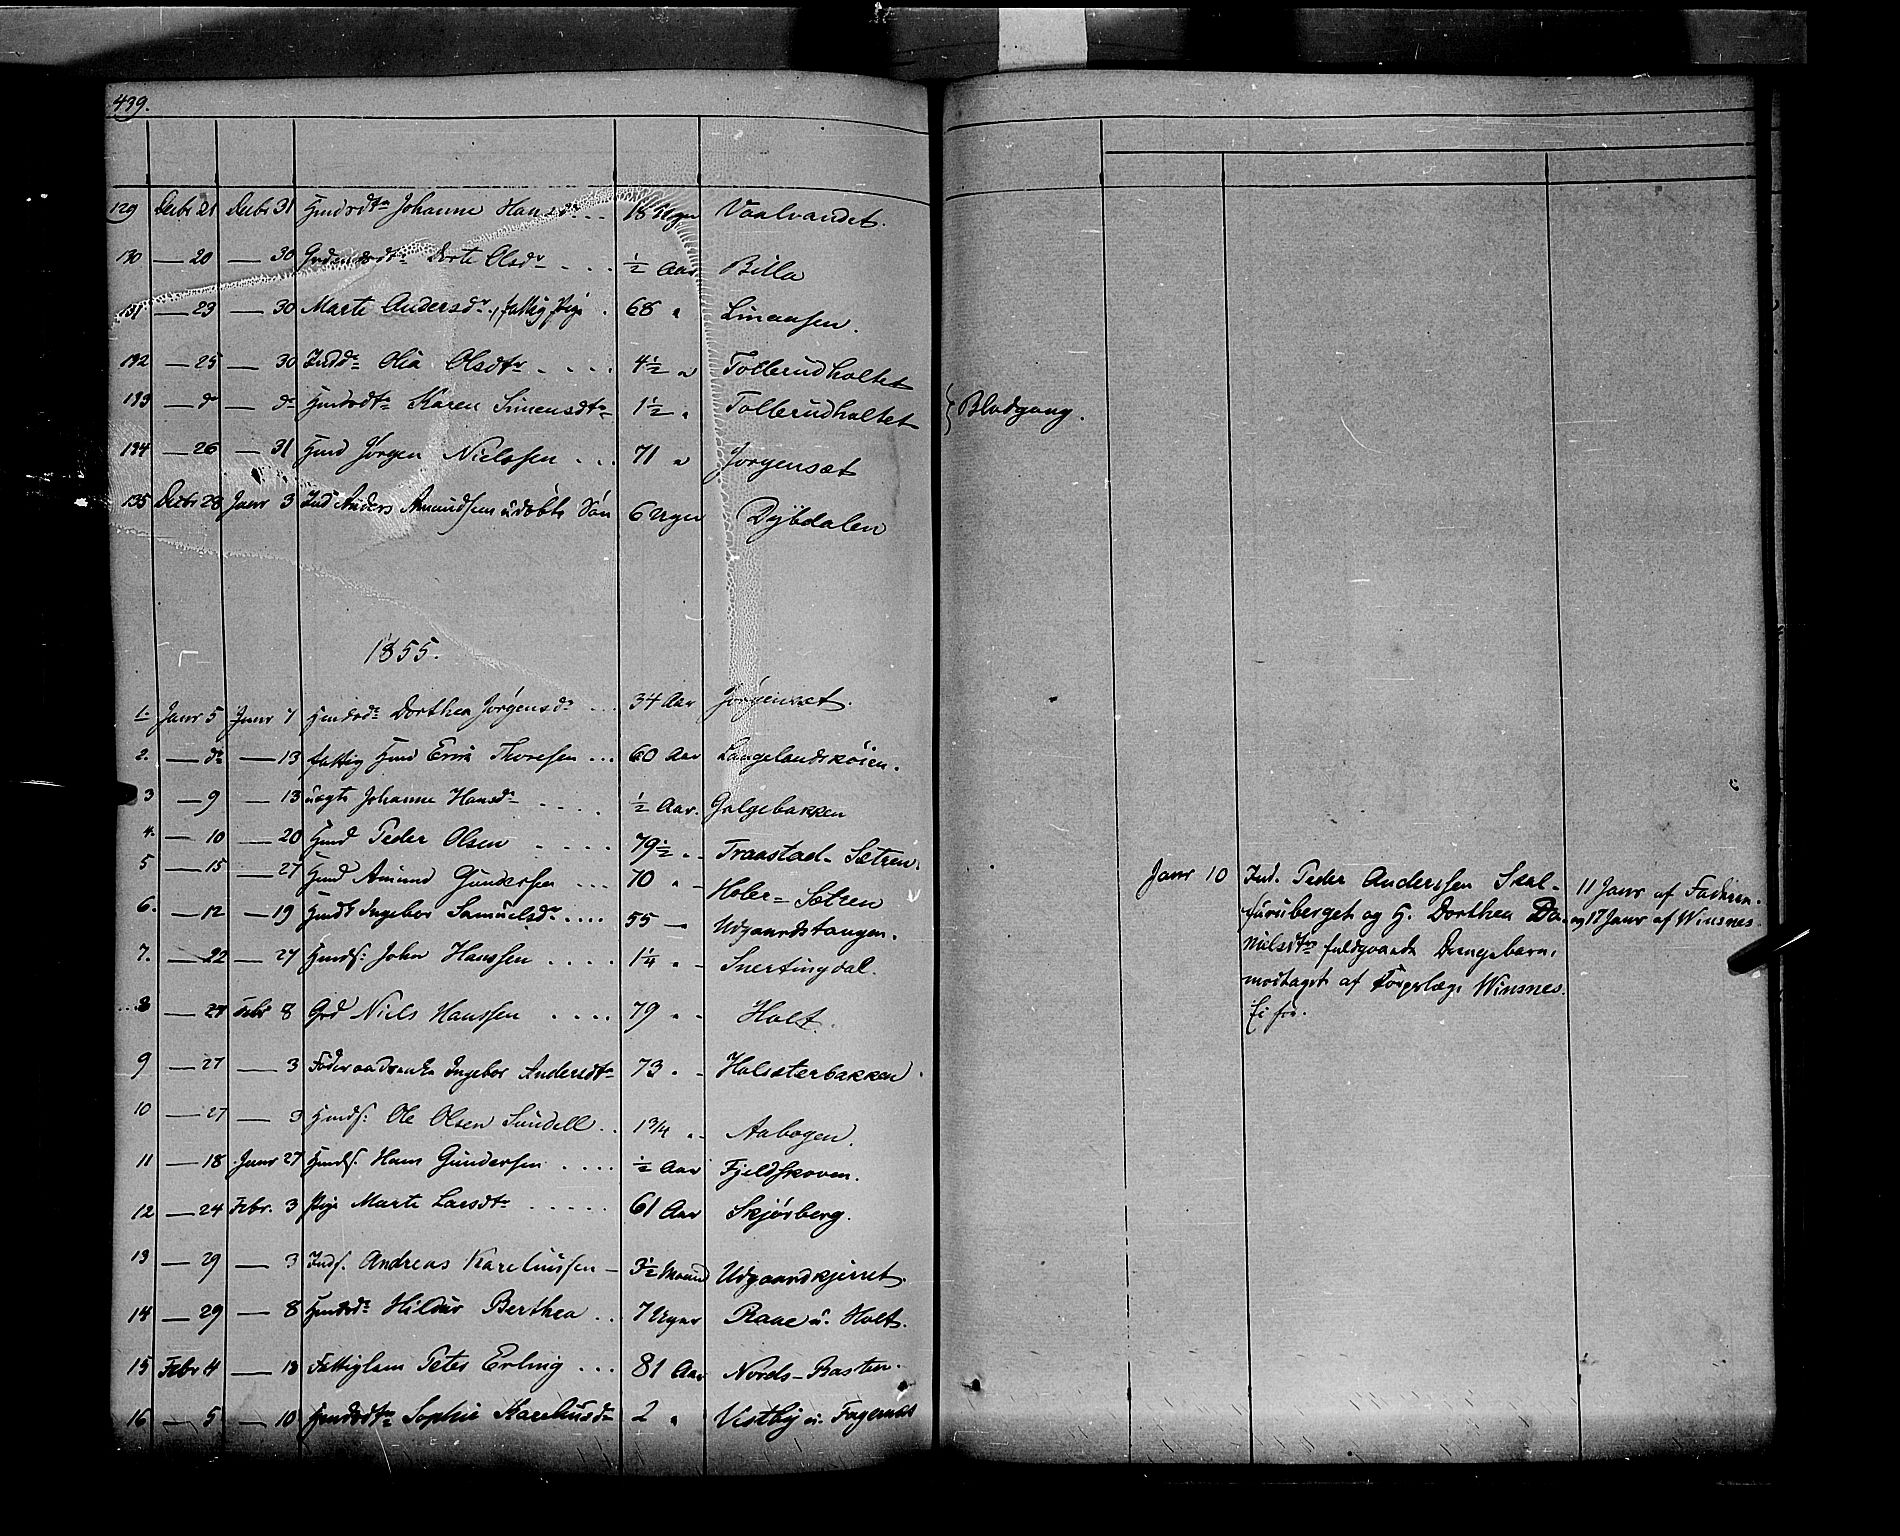 439.
129 Decbr 21 Decbr 31 Hmdsdtr Johanne Hansdr 18 Uger Vaalvandet.
130 — 20 — 30 Dorte Olsdr ½ Aar Billa
131 — 23 — 30 Marte Andersdr, fattig Pige 68 " Linaasen.
132 — 25 — 30 Indd: Olia Olsdtr 4½ " Tollerudholtet
133 — do — do Hmdsdtr Karen Simensdtr 1½ " Tollerudholtet } Blodgang.
134 — 26 — 31 Hmd Jørgen Nielssen 71 " Jørgenset
135 Decbr 28 Janr 3 Ind Anders Amundsens udøbte Søn 6 Uger Dybdalen
1855.
1. Janr 5 Janr 7 Hmdsdr Dorthea Jørgensdr 34 Aar Jørgenset.
2. — do — 13 fattig Hmd Even Thoresen 60 Aar Langelandskøien.
3 — 9 — 13 uægte Johanne Hansdr ½ Aar. Galgebakken
4. — 10 — 20 Hmd Peder Olsen 79½ " Traastad-Sætren.
5 — 15 — 27 Hmd Amund Gundersen 70 " Holer-Sætren
6. — 12 — 19 Ingebor Samuelsdr 55 — Udgaardstangen.
7. — 22 — 27 Hmds: John Hanssen 1¼ " Snertingdal.
8 — 27 Febr 8 Grd Niels Hanssen 79 " Holt.
9 — 27 — 3 Føderaadsenke Ingebor Andersdtr 73 " Holsæterbakken.
10 — 27 — 3 Hmds: Ole Olsen Sundell 1¾ " Aabogen.
11 — 18 Janr 27 Hmds. Hans Gundersen ½ Aar Fjeldskoven.
12 — 24 Febr. 3 Pige Marte Larsdtr 61 Aar Skjørberg.
13 — 29 — 3 Inds. Andreas Kareliussen 3½ Maaned Udgaardkjernet.
14 — 29 — 8 Hmdsdr Hildur Berthea 7 Uger Raae u. Holt.
15 Febr 4 — 13 Fattiglem Peter Erling 81 Aar Nords-Basten.
16 — 5 — 10 Hmdsdtr Sophie Kareliusdr 2 " Vestby u. Fagernæs
Janr 10 Ind. Peder Anderssen Skal-
furuberget og H. Dorthea Da-
nielsdtrs fuldgaaede Drengebarn,
modtaget af Corpslæge Winsnes.
Ei før.
11 Janr af Faderen.
og 17 Janr af Winsnes.